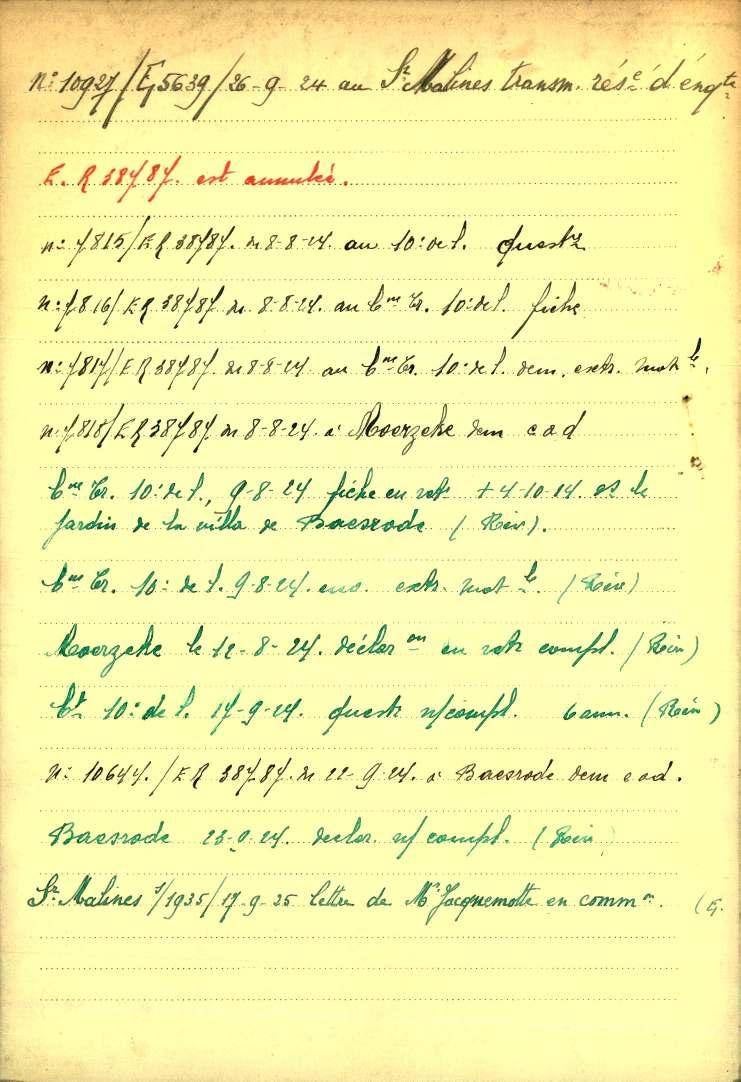 N° 10927/E5639/26-9-24 au Sr Malines transm. résé d'enqte
E.R 38787. est annulée.
n° 7815/ER 38787. du 8-8-24. au 10° de l. questre
n° 7816/ER 38787 du 8-8-24. au Cne Tr. 10° de l. fiche
n° 7817/ER 38787. du 8-8-24 au Cne Tr. 10° de l. dem. extr. mat le.
n° 7818/ER 38787 du 8-8-24. à Moerzeke dem e a d
Cne Tr. 10° de l., 9-8-24 fiche en retr + 4-10-14. ds le
jardin de la villa de Baesrode (Rein).
Cne Tr. 10° de l. 9-8-24. env. extr. mat le. (Rein)
Moerzeke le 12-8-24. déclar on en retr compl. (Rein)
Ct 10° de l. 17-9-24. questr n/compl. 6 ann. (Rein)
N° 10644./ER 38787. du 22-9-24. à Baesrode dem e a d.
Baesrode 23-9-24. declar. n/ compl. (Rein
Sr Malines 1/1935/17-9-25 lettre de Mr Jacquemotte en common. (E.